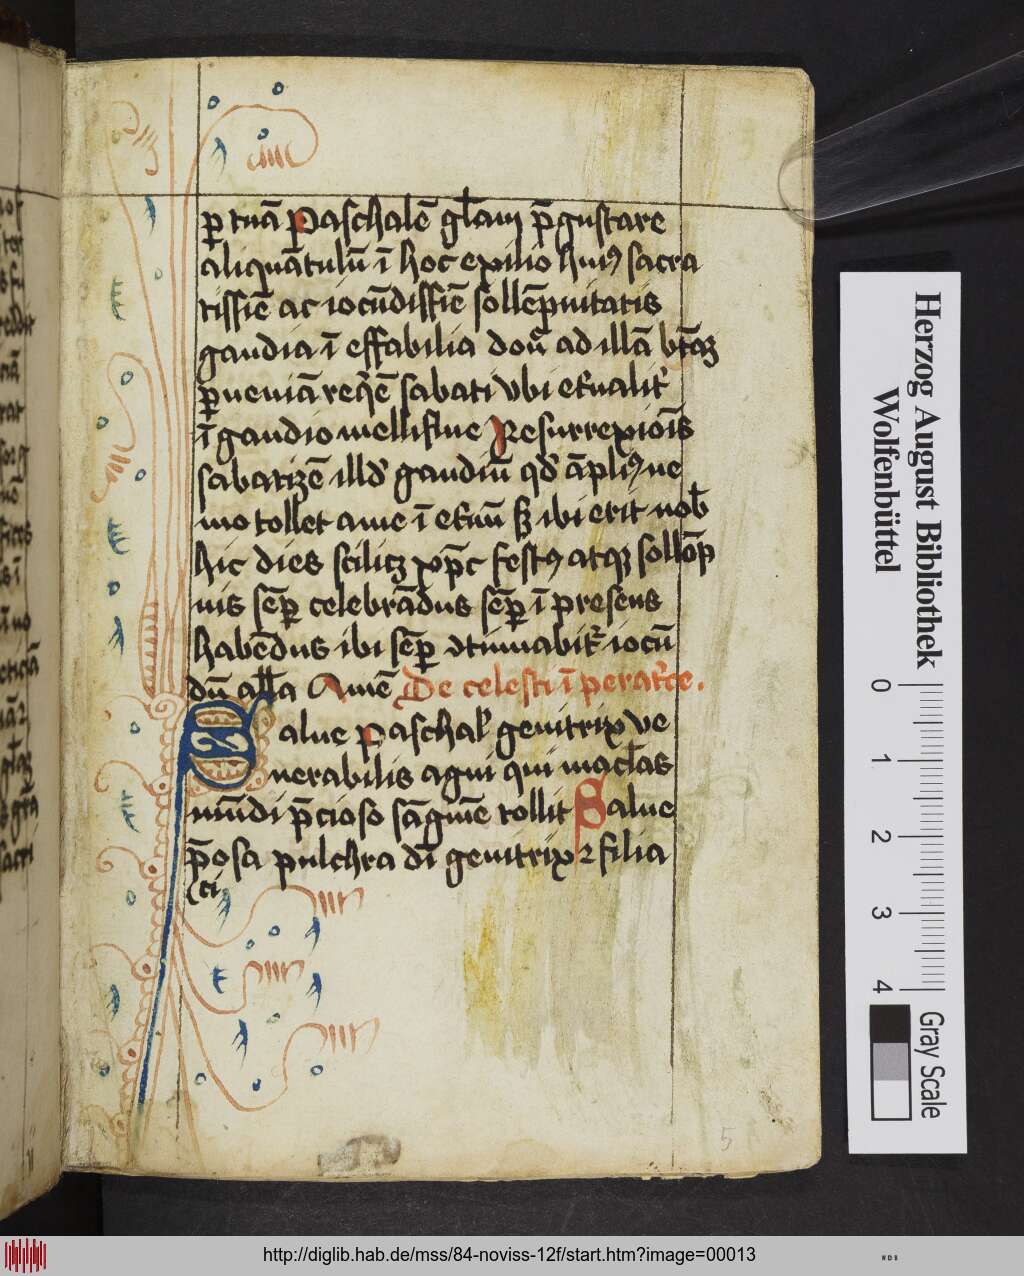 ꝑ tuā Paschalē gl̄am p̄gustare
aliquātulū ī hoc exilio huiꝰ sacra
tissīe ac iocūdissīe sollēpnitatis
gaudia ī effabilia donͣ ad illā btāꝫ
ꝑueniā reqͥē sabati vbi et̄nalit̾
ī gaudio melliflue Resurrexiōīs
sabatizē illd̾ gaudiū qd̾ āpliꝰ ne
mo tollet a me ī et̄nū sꝫ ibi erit nob̄
hic dies scilicꝫ xp̄c festꝰ atqꝫ sollōp
nis sēꝑ celebrādus sēꝑ ī presens
habēdus ibi sēꝑ 9tinuabit̾ iocū
dū all̄a Amē De celesti īperat̾ce.
Salue Paschal̾ genitrix ve
nerabilis agni qui mac̄las
mūdi p̄cioso sāguīe tollit Salue
p̄osa pulchra di genitrix ⁊ filia
cͥ
5
Herzog August Bibliothek
Wolfenbüttel
0 1 2 3 4
Gray Scale
http://diglib.hab.de/mss/84-noviss-12f/start.htm?image=00013